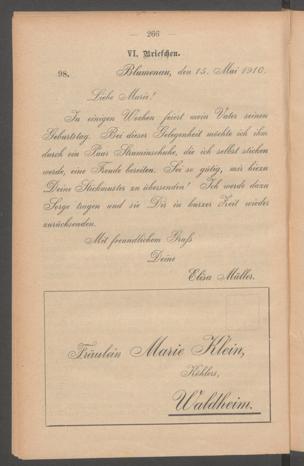 — 266 —
VI. Briefchen.
98. Blumenau, den 15. Mai 1910.
Liebe Marie!
In einigen Wochen feiert mein Vater seinen
Geburtstag. Bei dieser Gelegenheit möchte ich ihm
durch ein Paar Straminschuhe, die ich selbst sticken
werde, eine Freude bereiten. Sei so gütig, mir hiezu
Deine Stickmuster zu übersenden! Ich werde dazu
Sorge tragen und sie Dir in kurzer Zeit wieder
zurücksenden.
Mit freundlichem Gruß
Deine
Elisa Müller.
Fräulein Marie Klein,
Köhlers,
Waldheim.